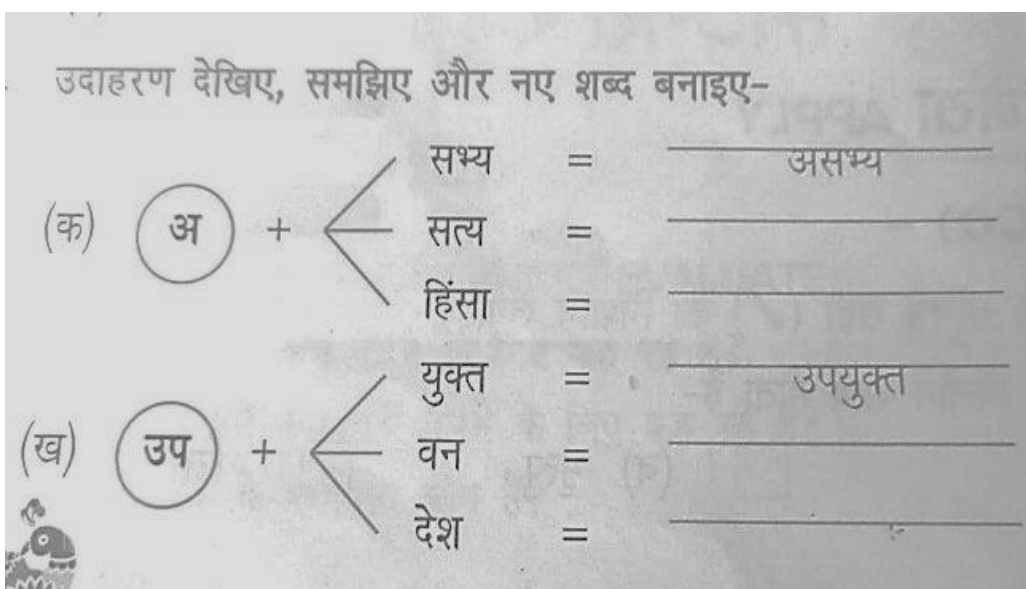 उदाहरण देखिए, समझिए और नए शब्द बनाइए-
सभ्य = असभ्य
(क) अ + सत्य =
हिंसा =
युक्त = उपयुक्त
(ख) उप + वन =
देश =